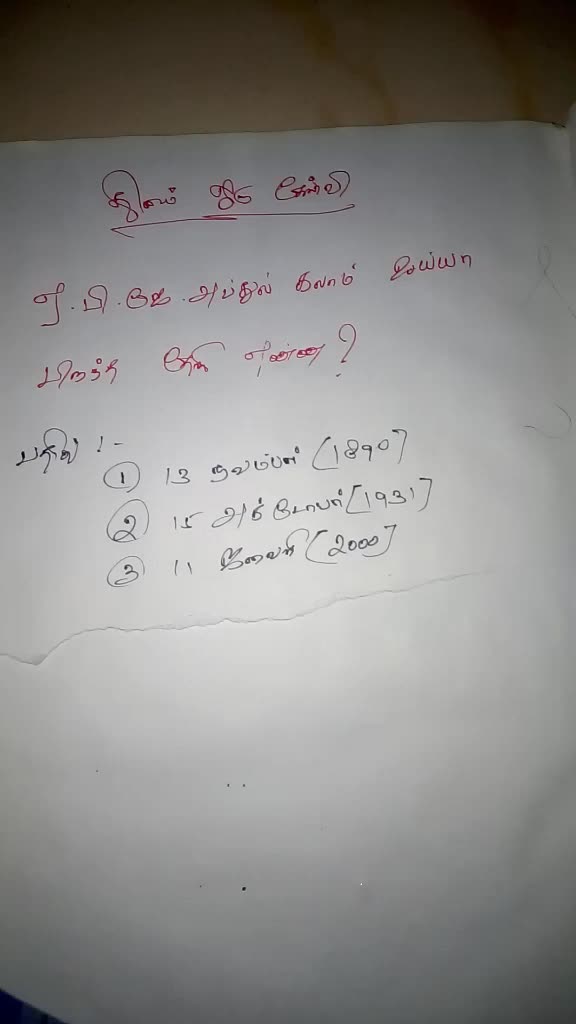 தினம் ஒரு கேள்வி
ஏ.பி.ஜே.அப்துல் கலாம் ஐய்யா
பிறந்த தேதி என்ன?
பதில் :-
① 13 நவம்பர் [1890]
② 15 அக்டோபர் [1931]
③ 11 ஜூலை [2000]